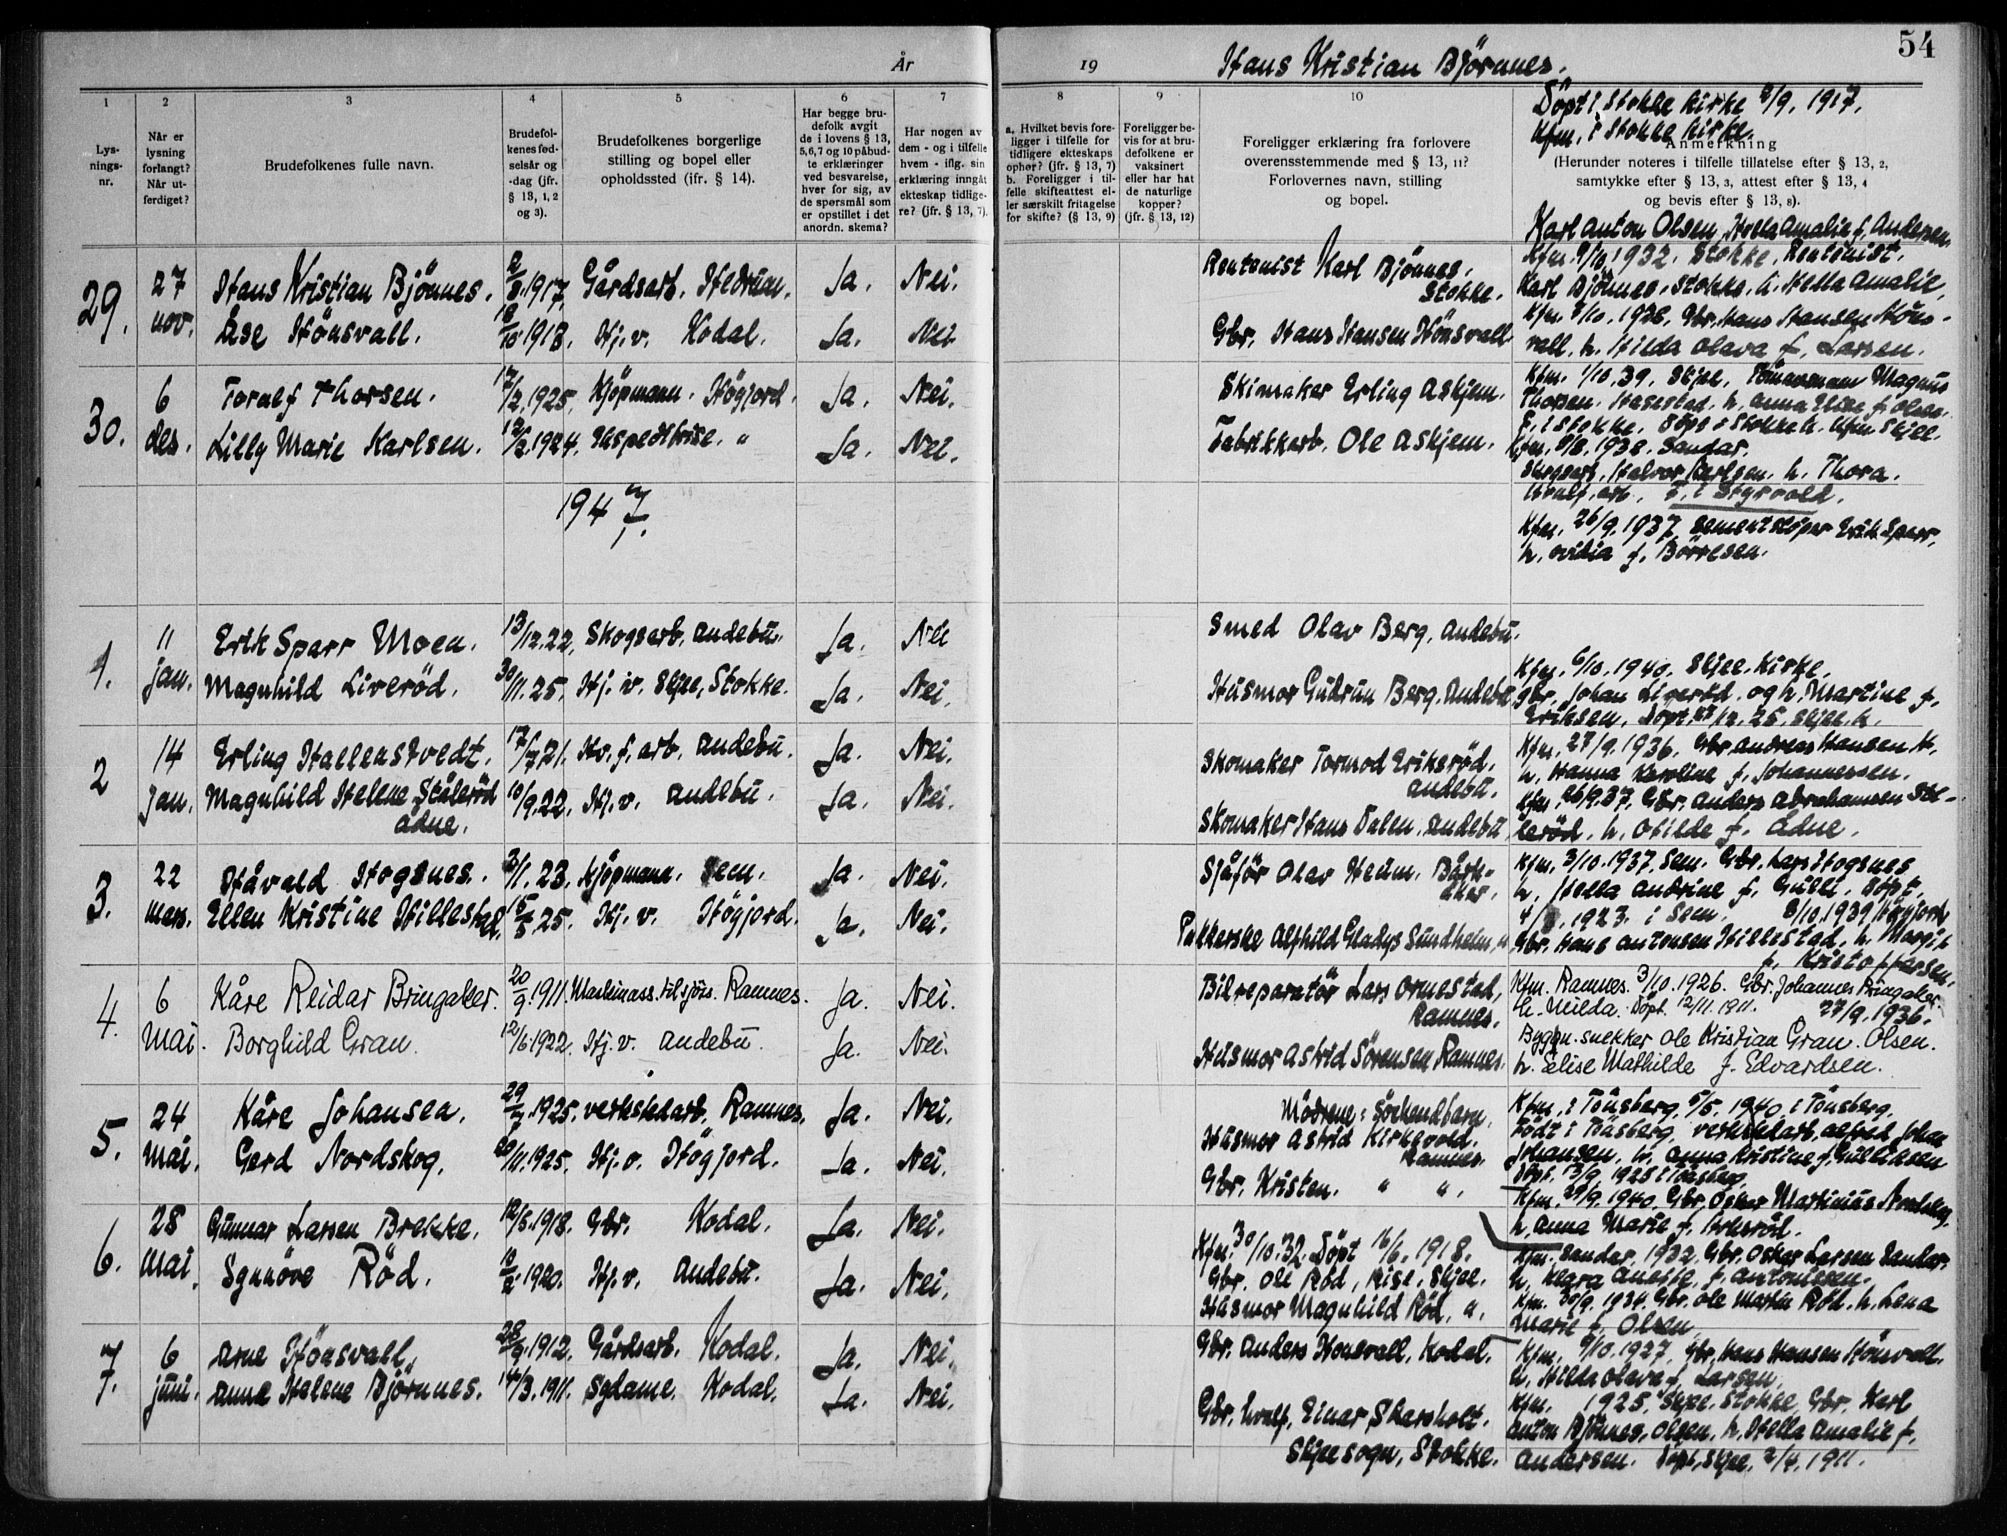 54
År
19
Hans Kristian Björnnes.
Döpt i Stokke kirke 2/9. 1917.
Kfm. i Stokke kirke.
1
2
3
4
5
6
7
8
9
10
Lys-
nings-
nr.
Når er
lysning
forlangt?
Når ut-
ferdiget?
Brudefolkenes fulle navn.
Brudefol-
kenes fød-
selsår og
-dag (jfr.
§ 13, 1, 2
og 3).
Brudefolkenes borgerlige
stilling og bopel eller
opholdssted (ifr. § 14).
Har begge bru-
defolk avgit
de i lovens § 13,
5,6,7 og 10 påbud-
te erklæringer
ved besvarelse,
hver for sig, av
de spørsmål som
er opstillet i det
anordn. skema?
Har nogen av
dem - og i tilfelle
hvem - iflg. sin
erklæring inngåt
ekteskap tidlige-
re? (jfr. § 13, 7).
a. Hvilket bevis fore-
ligger i tilfelle for
tidligere ekteskaps
ophør? (jfr. § 13, 7)
b. Foreligger i til-
felle skifteattest el-
ler særskilt fritagelse
for skifte? (§ 13, 9)
Foreligger be-
vis for at bru-
defolkene er
vaksinert
eller har hat
de naturlige
kopper?
(jfr. § 13, 12)
Foreligger erklæring fra forlovere
overensstemmende med § 13, 11?
Forlovernes navn, stilling
og bopel.
Anmerkning
(Herunder noteres i tilfelle tillatelse efter § 13, 2,
samtykke efter § 13, 3, attest efter § 13, 4
og bevis efter § 13, 8).
29. 27 nov.
Hans Kristian Björnnes. 2/8. 1917. Gårdsarb. Hedrum. Ja. Nei.
Åse Hönsvall. 1918. Hj. v. Kodal. Ja. Nei
Rentenist Karl Björnnes. Stokke.
Gbr. Hans Hansen Hönsvall.
Karl Anton Olsen, Hella Amalie f. Andersen
Kfm. 9/10. 1932. Stokke. Rentenist.
Karl Björnnes. Stokke. h. Hella Amalie.
Kfm. 1928. Gbr. Hans Hansen Höns-
vall. h. Hilda Olava f. Larsen.
30. 6 des.
Toralf Thorsen. 17/2. 1925. Kjöpmann. Högjord. Ja. Nei.
Lilly Marie Karlsen. 1924. Ekspeditrise. " Ja. Nei.
Skimaker Erling Askjem.
Fabrikkarb. Ole Askjem.
Kfm. 1/10. 39. Skjee. Tömmermann Magnus
Thorsen. h. Anna f. Olsen.
F. i Stokke. Döpt i Stokke k. Kfm. Skjee.
Kfm. 1938. Sandar.
Halvor Karlsen. h. Thora.
F. i Styrvold.
1947.
Kfm. 26/9. 1937. Sementstöper Erik Sparr,
h. Ovidia f. Börresen.
1. 11 jan.
Erik Sparr Moen. 13/12. 22. Skogsarb. Andebu. Ja. Nei
Magnhild Liveröd. 30/11. 25. Hj. v. Skjee, Stokke. Ja. Nei.
Smed Olav Berg. Andebu.
Husmor Gudrun Berg. Andebu
Kfm. 6/10. 1940. Skjee kirke.
Gbr. Johan Ligeröd. og h. Martine f.
Eriksen. Döpt 27/12. 25. Skjee k.
2 14 jan.
Erling Hallenstvedt. 17/7. 21. Hv. f. arb. Andebu. Ja. Nei.
Magnhild Helene Stålerød 10/9. 22. Hj. v. Andebu. Ja. Nei.
Ådne.
Skomaker Tormod Erikeröd.
Andebu.
Skomaker Hans Dalen. Andebu
Kfm. 27/9. 1936. Gbr. Andreas Hansen H.
h. Hanna Karoline f. Johannessen.
Kfm. 26/9. 37. Gbr. Anders Abrahamsen Stå-
leröd. h. Otilde f. Ådne.
3. 22 mars.
Håvald Hogsnes. 3/1. 23. Kjöpmann. Sem. Ja. Nei.
Ellen Kristine Hillestad. 15/5. 25. Hj. v. Högjord. Ja. Nei.
Sjåför Olav Heum. Bark-
åker.
Pakkerske Alfhild Gladys Sundhelm "
Kfm. 3/10. 1937. Sem. Gbr. Lars Hogsnes
h. Hella Andrine f. Gulli. Döpt.
1923. i Sem. 8/10. 1939 Högjord
Gbr. Hans Antonsen Hillestad. h. Margit
f. Kristoffersen.
4. 6 Mai
Kåre Reidar Bringaker. 20/9. 1911. Maskinass. tilsjös. Ramnes. Ja. Nei.
Borghild Gran. 12/6. 1922. Hj. v. Andebu. Ja. Nei.
Bilreparatör Lars Ormestad,
Ramnes.
Husmor Astrid Sörensen Ramnes.
Kfm. Ramnes. 3/10. 1926. Gbr. Johannes Bringaker.
h. Milda. Döpt. 12/11. 1911. 27/9. 1936.
Byggn. snekker Ole Kristian Gran. Olsen.
h. Elise Mathilde f. Edvardsen.
5. 24 mai.
Kåre Johansen. 29/7. 1925. verkstedarb. Ramnes. Ja. Nei.
Gerd Nordskog. 20/11. 1925. Hj. v. Högjord. Ja. Nei.
Mödrene: Söskendbarn.
Husmor Astrid Kirkevold.
Ramnes.
Gbr. Kristen. " ".
Kfm. i Tönsberg. 5/5. 1940. i Tönsberg.
Födt i Tönsberg. verkstedarb. Alfred Johan
Johansen, h. Anna Kristine f. Gulliksen
Döpt. 13/9. 1925 i Tönsberg.
Kfm. 29/9. 1940. Gbr. Oskar Martinius Nordskog.
h. Anna Marie f.
6. 28 mai.
Gunnar Larsen Brekke. 12/5. 1918. Gbr. Kodal. Ja. Nei.
Synnöve Röd. 1920. Hj. v. Andebu. Ja. Nei.
Kfm. 30/10. 32. Döpt 16/6. 1918.
Gbr. Ole Röd, Rise. Skjee.
Husmor Magnhild Röd. ".
Kfm. Sandar. 1932. Gbr. Oskar Larsen Sandar.
h. Klara f. Antonissen.
Kfm. 30/9. 1934. Gbr. Ole Martin Röd. h. Lena
Marie f. Olsen
7. 6 juni.
Arne Hönsvall. 28/9. 1912. Gårdsarb. Kodal. Ja. Nei.
Anna Helene Björnnes. 14/3. 1911. Sydame Kodal. Ja. Nei.
Gbr. Anders Honsvall. Kodal.
Gbr. Einar Skarsholt.
Skjee sogn, Stokke.
Kfm. 9/10. 1927. Gbr. Hans Hansen Hönsvall.
h. Hilda Olava f. Larsen.
Kfm. 1925. Skjee. Stokke Gbr. Karl
Anton Björnnes, Olsen, h. Hella Amalie f.
Andersen. Döpt, Skjee. 2/4. 1911.